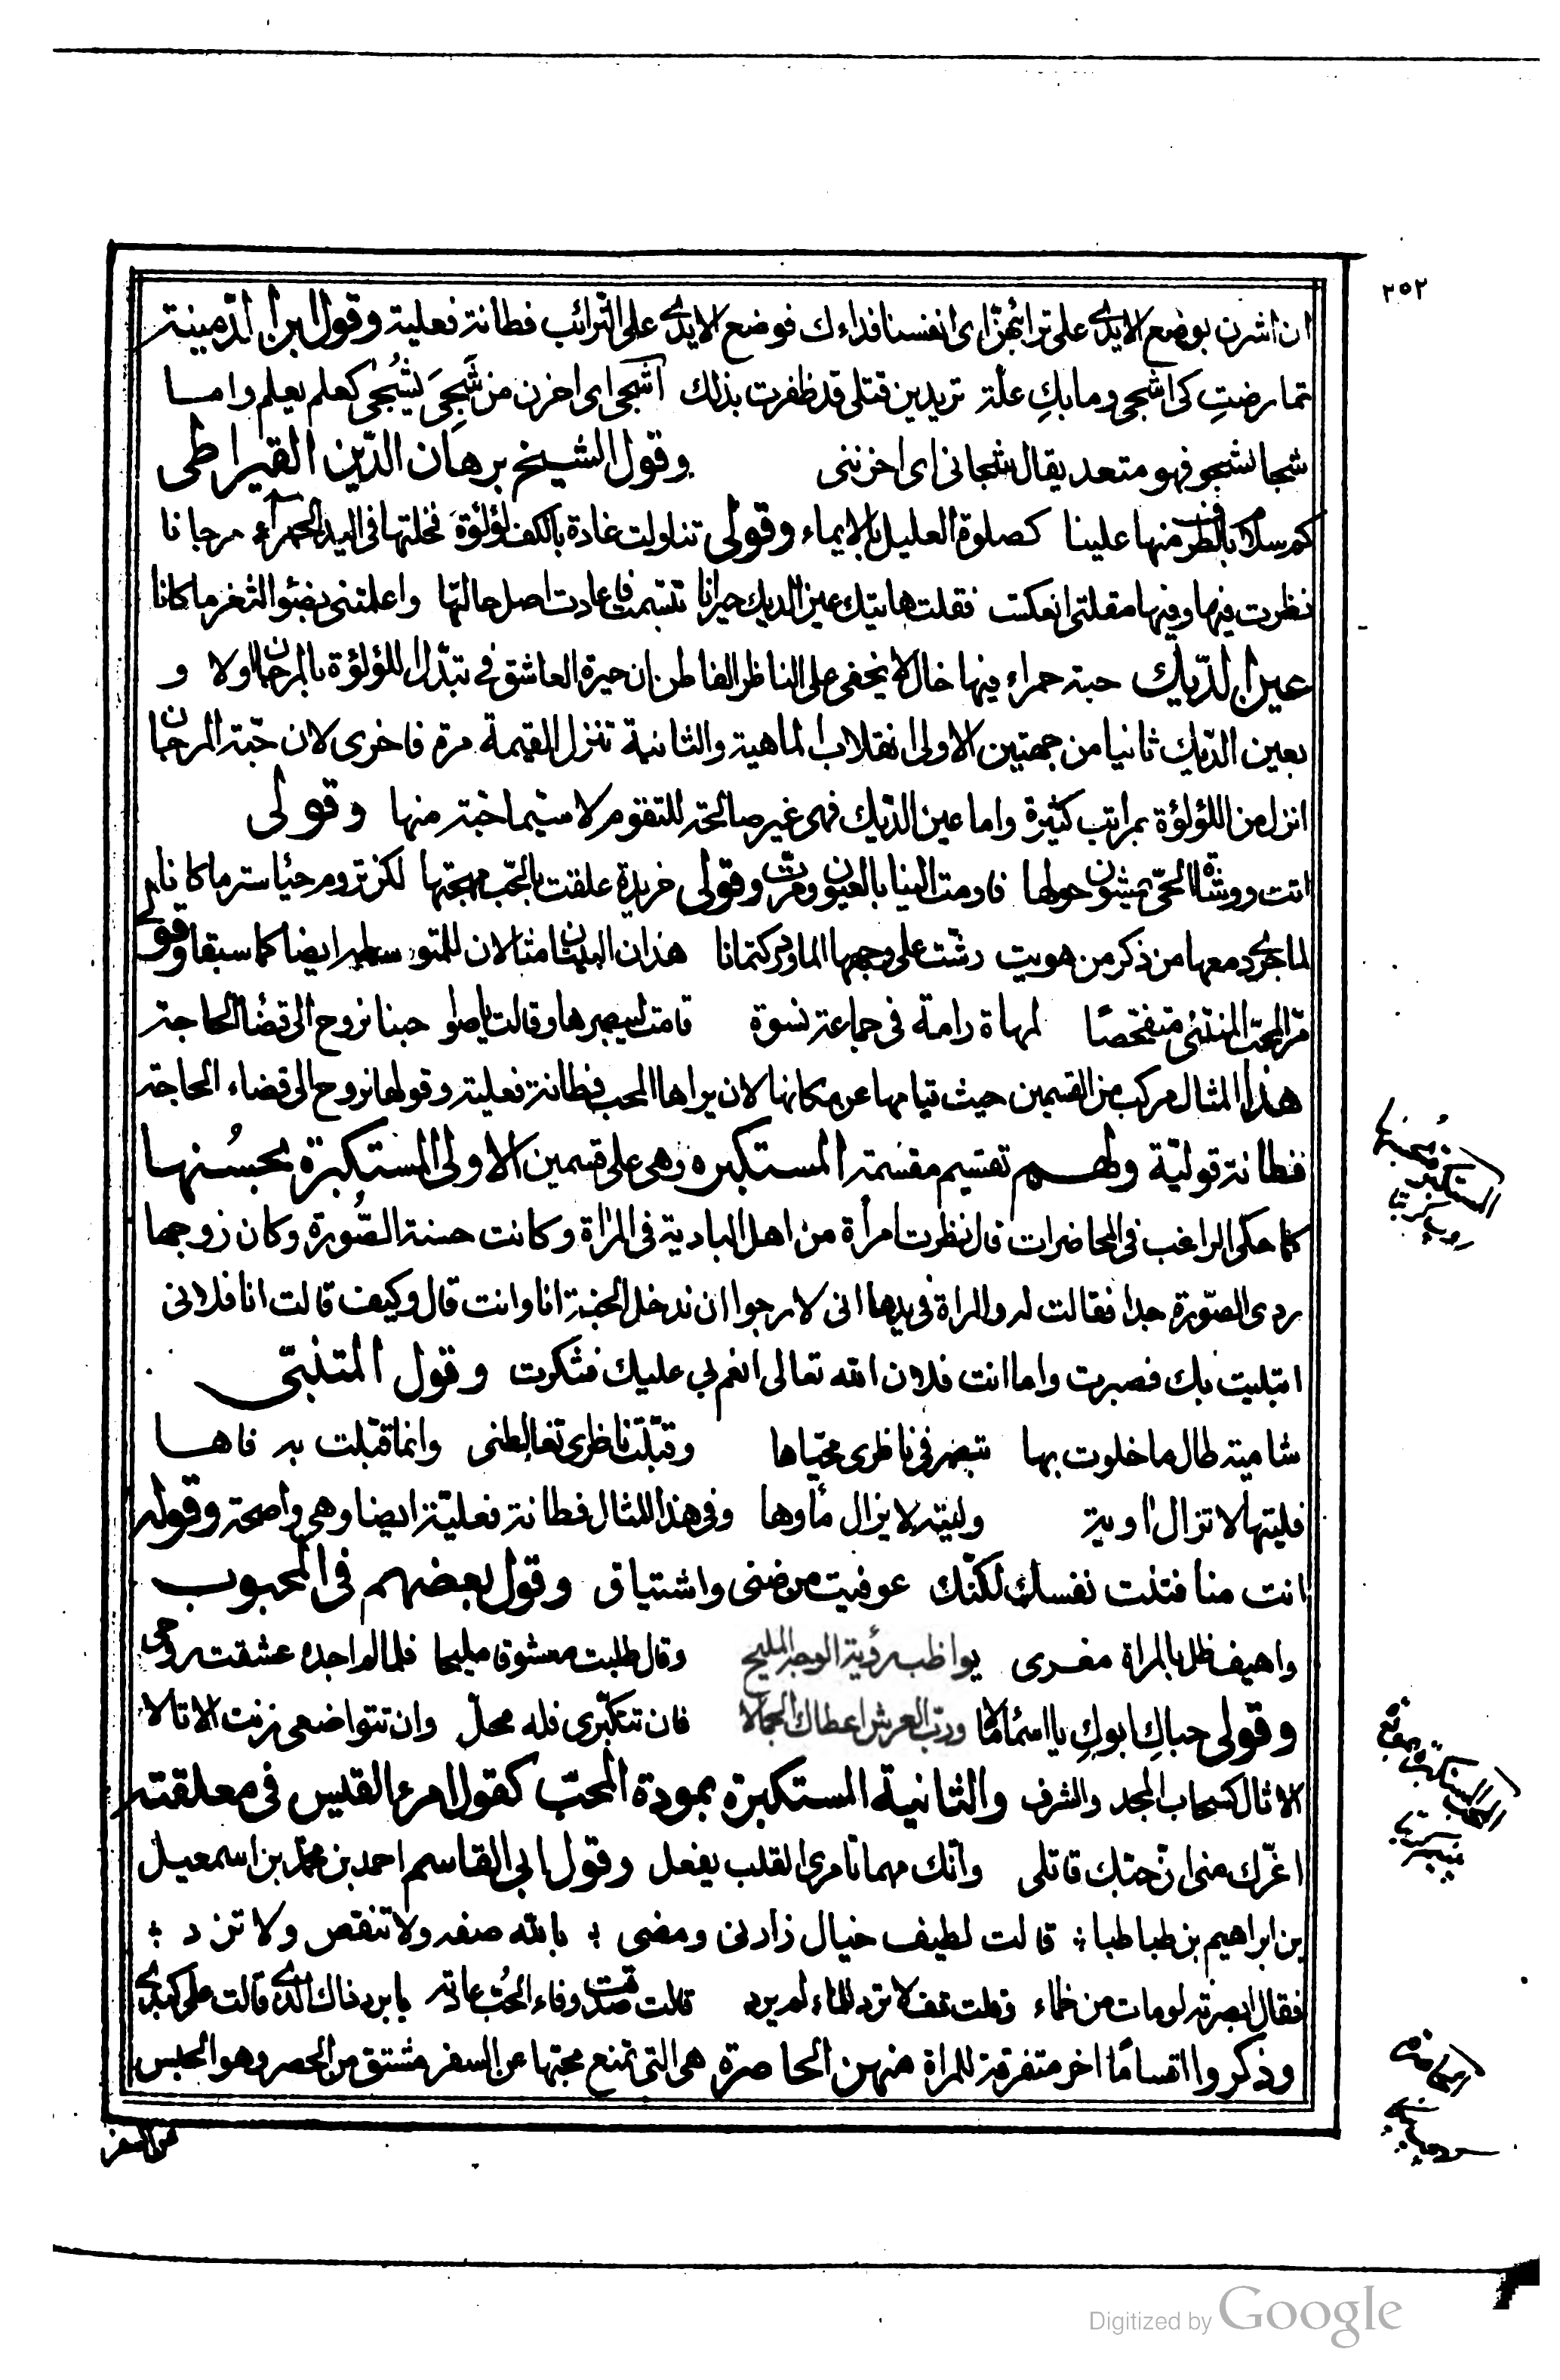 ٢٥٢
ان اشرن بوضع الايدى على ترائبهن اى انفسنا فداءك فوضع الايدى على الترائب فطانة فعلية وقول ابن الدمينة
تمارضتِ كى اشجى وما بكِ علة تريدين قتلى قد ظفرت بذلك اشجى اى احزن من شَجِىَ يشجى كعلم يعلم واما
شجا يشجو فهو متعد يقال شجانى اى احزننى وقول الشيخ برهان الدّين القيراطى
كم سلام بالطرف منها علينا كصلوة العليل بالايماء وقولى تناولت غادة بالكف لؤلؤة فخلتها فى اليد الحمراء مرجانا
نظرت فيها وفيها مقلتى انعكست فقلت هاتيك عين الديك حيرانا تبسمت فاعادت اصل حالتها واعلمتنى بضوء الثغر ما كانا
عين الدّيك حبة حمراء فيها خال لا يخفى على الناظر الفاطن ان حيرة العاشق فى تبدّل اللؤلؤة بالمرجان اولا و
بعين الدّيك ثانيا من جهتين الاولى انقلاب الماهية والثانية تنزل القيمة مرة فاخرى لان حبّة المرجان
انزل من اللؤلؤة بمراتب كثيرة واما عين الدّيك فهى غير صالحة للتقوم لا سيّما حبّة منها وقولى
اتت ووشاة الحىّ يمشون حولها فاومت الينا بالعيون ومرّت وقولى خريدة علقت بالحبّ مهجتها لكن تروم حياء ستر ما كانا
لما جرى دمعها من ذكر من هويت رشت على وجهها الماورد كتمانا هذان البيتان مثالان للمتوسطة ايضا كما سبقا وقولى
مرّ المحبّ المنتئى متفحّصًا لمهاة رامة فى جماعة نسوة قامت ليبصرها وقالت يا صواحبنا نروح الى قضاء الحاجة
هذا المثال مركب من القسمين حيث قيامها عن مكانها لان يراها المحب فطانة فعلية وقولها نروح الى قضاء الحاجة
فطانة قوليّة ولهم تقسيم مقسمة المستكبره وهى على قسمين الاولى المستكبرة بحسُنها
كما حكى الراغب فى المحاضرات قال نظرت امرأة من اهل البادية فى المرٰاة وكانت حسنة الصُّورة وكان زوجها
ردى الصّورة جدا فقالت له والمراة فى يدها انى لارجوا ان ندخل الجنة انا وانت قال وكيف قالت انا فلانى
ابتليت بك فصبرت واما انت فلان الله تعالى انعم بى عليك فشكرت وقول المتنبّى
شامية طال ما خلوت بها تبصر فى ناظرى محيّاها وقبّلت ناظرى تغالطنى وانما قبّلت به فاها
فليتها لا تزال اٰوية وليته لا يزال مأواها وفى هذا المثال فطانة فعليّة ايضا وهى واضحة وقوله
انت منا فتنت نفسك لكنّك عوفيت من ضنى واشتياق وقول بعضهم فى المحبوب
واهيف ظل بالمراة مغرى يواظب رؤية الوجه المليح وقال طلبت معشوقا مليحا فلما لم اجده عشقت روحى
وقولى حباكِ ابوكِ يا اسماء مالا وربّ العرش اعطاك الجمالا فان تتكبّرى فله محلّ وان تتواضعى زنت الاثالا
الاثال كسحاب المجد والشرف والثانية المستكبرة بمودة المحبّ كقول امرء القيس فى معلقته
اغرّك منى ان حبّك قاتلى وانّك مهما تأمرى القلب يفعل وقول ابى القاسم احمد بن محمّد بن اسمعيل
بن ابراهيم بن طباطبا ؛ قالت لطيف خيال زارنى ومضى ؛ بالله صفه ولا تنقص ولا تزد ؛
فقال ابصرته لو مات من ظماء وقلت قف لا ترد للماء لم يرد قالت صدقت وفاء الحُبّ عادته يا برد ذاك الذى قالت على كبدى
وذكروا اقسامًا اخر متفرقة للمراة منهن الحاصرة هى التى تمنع محبّها عن السفر مشتق من الحصر وهو الحبس
عن السفر